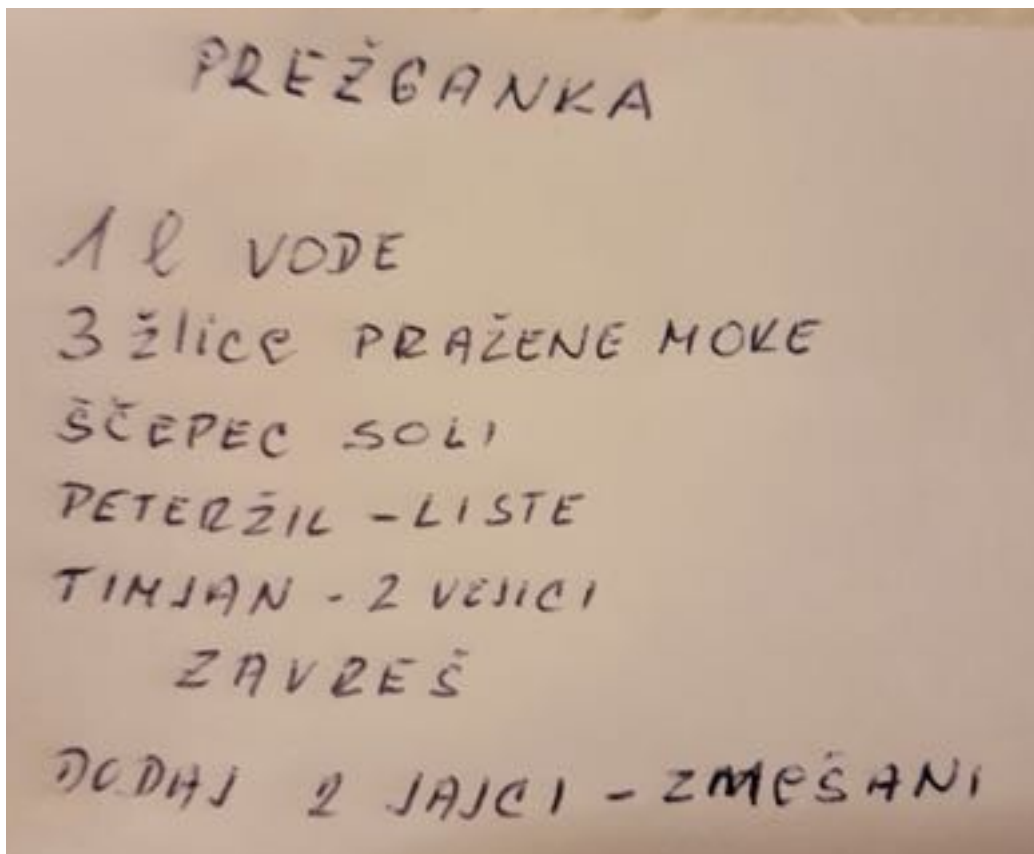 PREŽGANKA
1 l VODE
3 žlice PRAŽENE MOKE
ŠČEPEC SOLI
PETERŽIL - LISTE
TIMJAN - 2 VEJICI
ZAVREŠ
DODAJ 2 JAJCI - ZMEŠANI